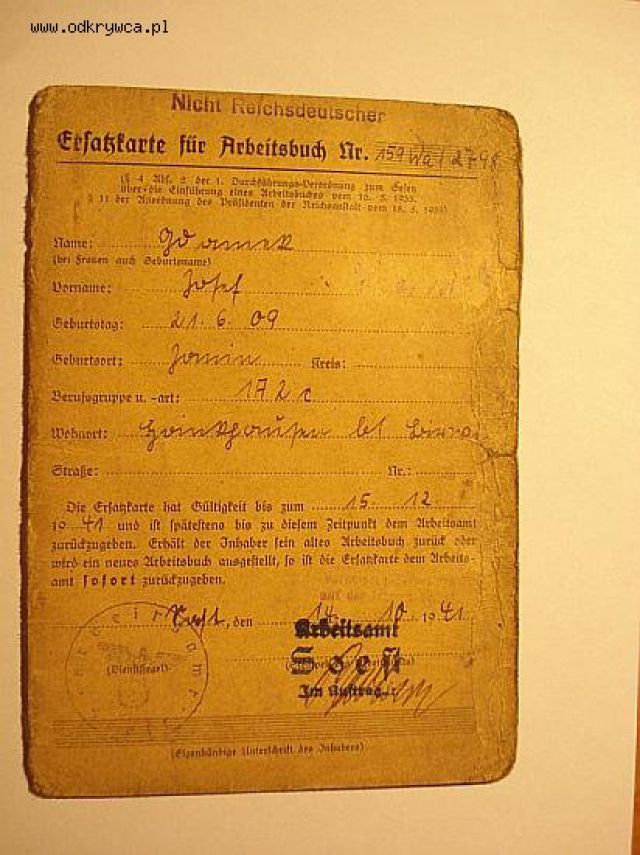 www.odkrywca.pl
Nicht Reichsdeutscher
Ersatzkarte für Arbeitsbuch Nr. 159 Wa / 2748
(§ 4 Abs. 2 der 1. Durchführungs-Verordnung zum Gesetz
über die Einführung eines Arbeitsbuches vom 16. 5. 1935.
§ 11 der Anordnung des Präsidenten der Reichsanstalt vom 18. 5. 1935)
Name:
(bei Frauen auch Geburtsname)
Vorname: Josef
Geburtstag: 21. 6. 09
Geburtsort: Janin Kreis:
Berufsgruppe u. -art: 172c
Wohnort:
Straße: Nr.:
Die Ersatzkarte hat Gültigkeit bis zum 15 12
1941 und ist spätestens bis zu diesem Zeitpunkt dem Arbeitsamt
zurückzugeben. Erhält der Inhaber sein altes Arbeitsbuch zurück oder
wird ein neues Arbeitsbuch ausgestellt, so ist die Ersatzkarte dem Arbeits-
amt sofort zurückzugeben.
, den 14. 10 1941
Arbeitsamt
Soest
(Dienstsiegel)
Im Auftrag
(Eigenhändige Unterschrift des Inhabers)